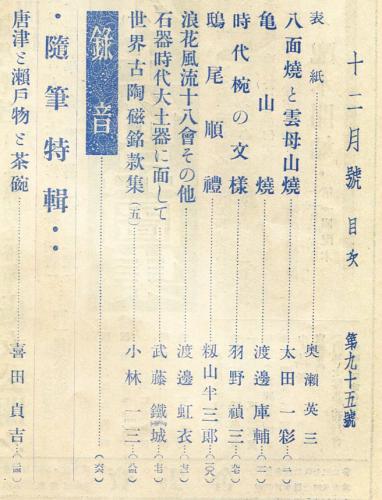 十二月號 目次 第九十五號
表紙 奥瀬英三
八面燒と雲母山燒 太田一彩
亀山燒 渡邊庫輔
時代椀の文様 羽野禎三
鴟尾順禮 籾山半三郎
浪花風流十八會その他 渡邊虹衣
石器時代大土器に面して 武藤鐵城
世界古陶磁銘款集(五) 小林一三
錄音
・隨筆特輯・・
唐津と瀬戸物と茶碗 喜田貞吉